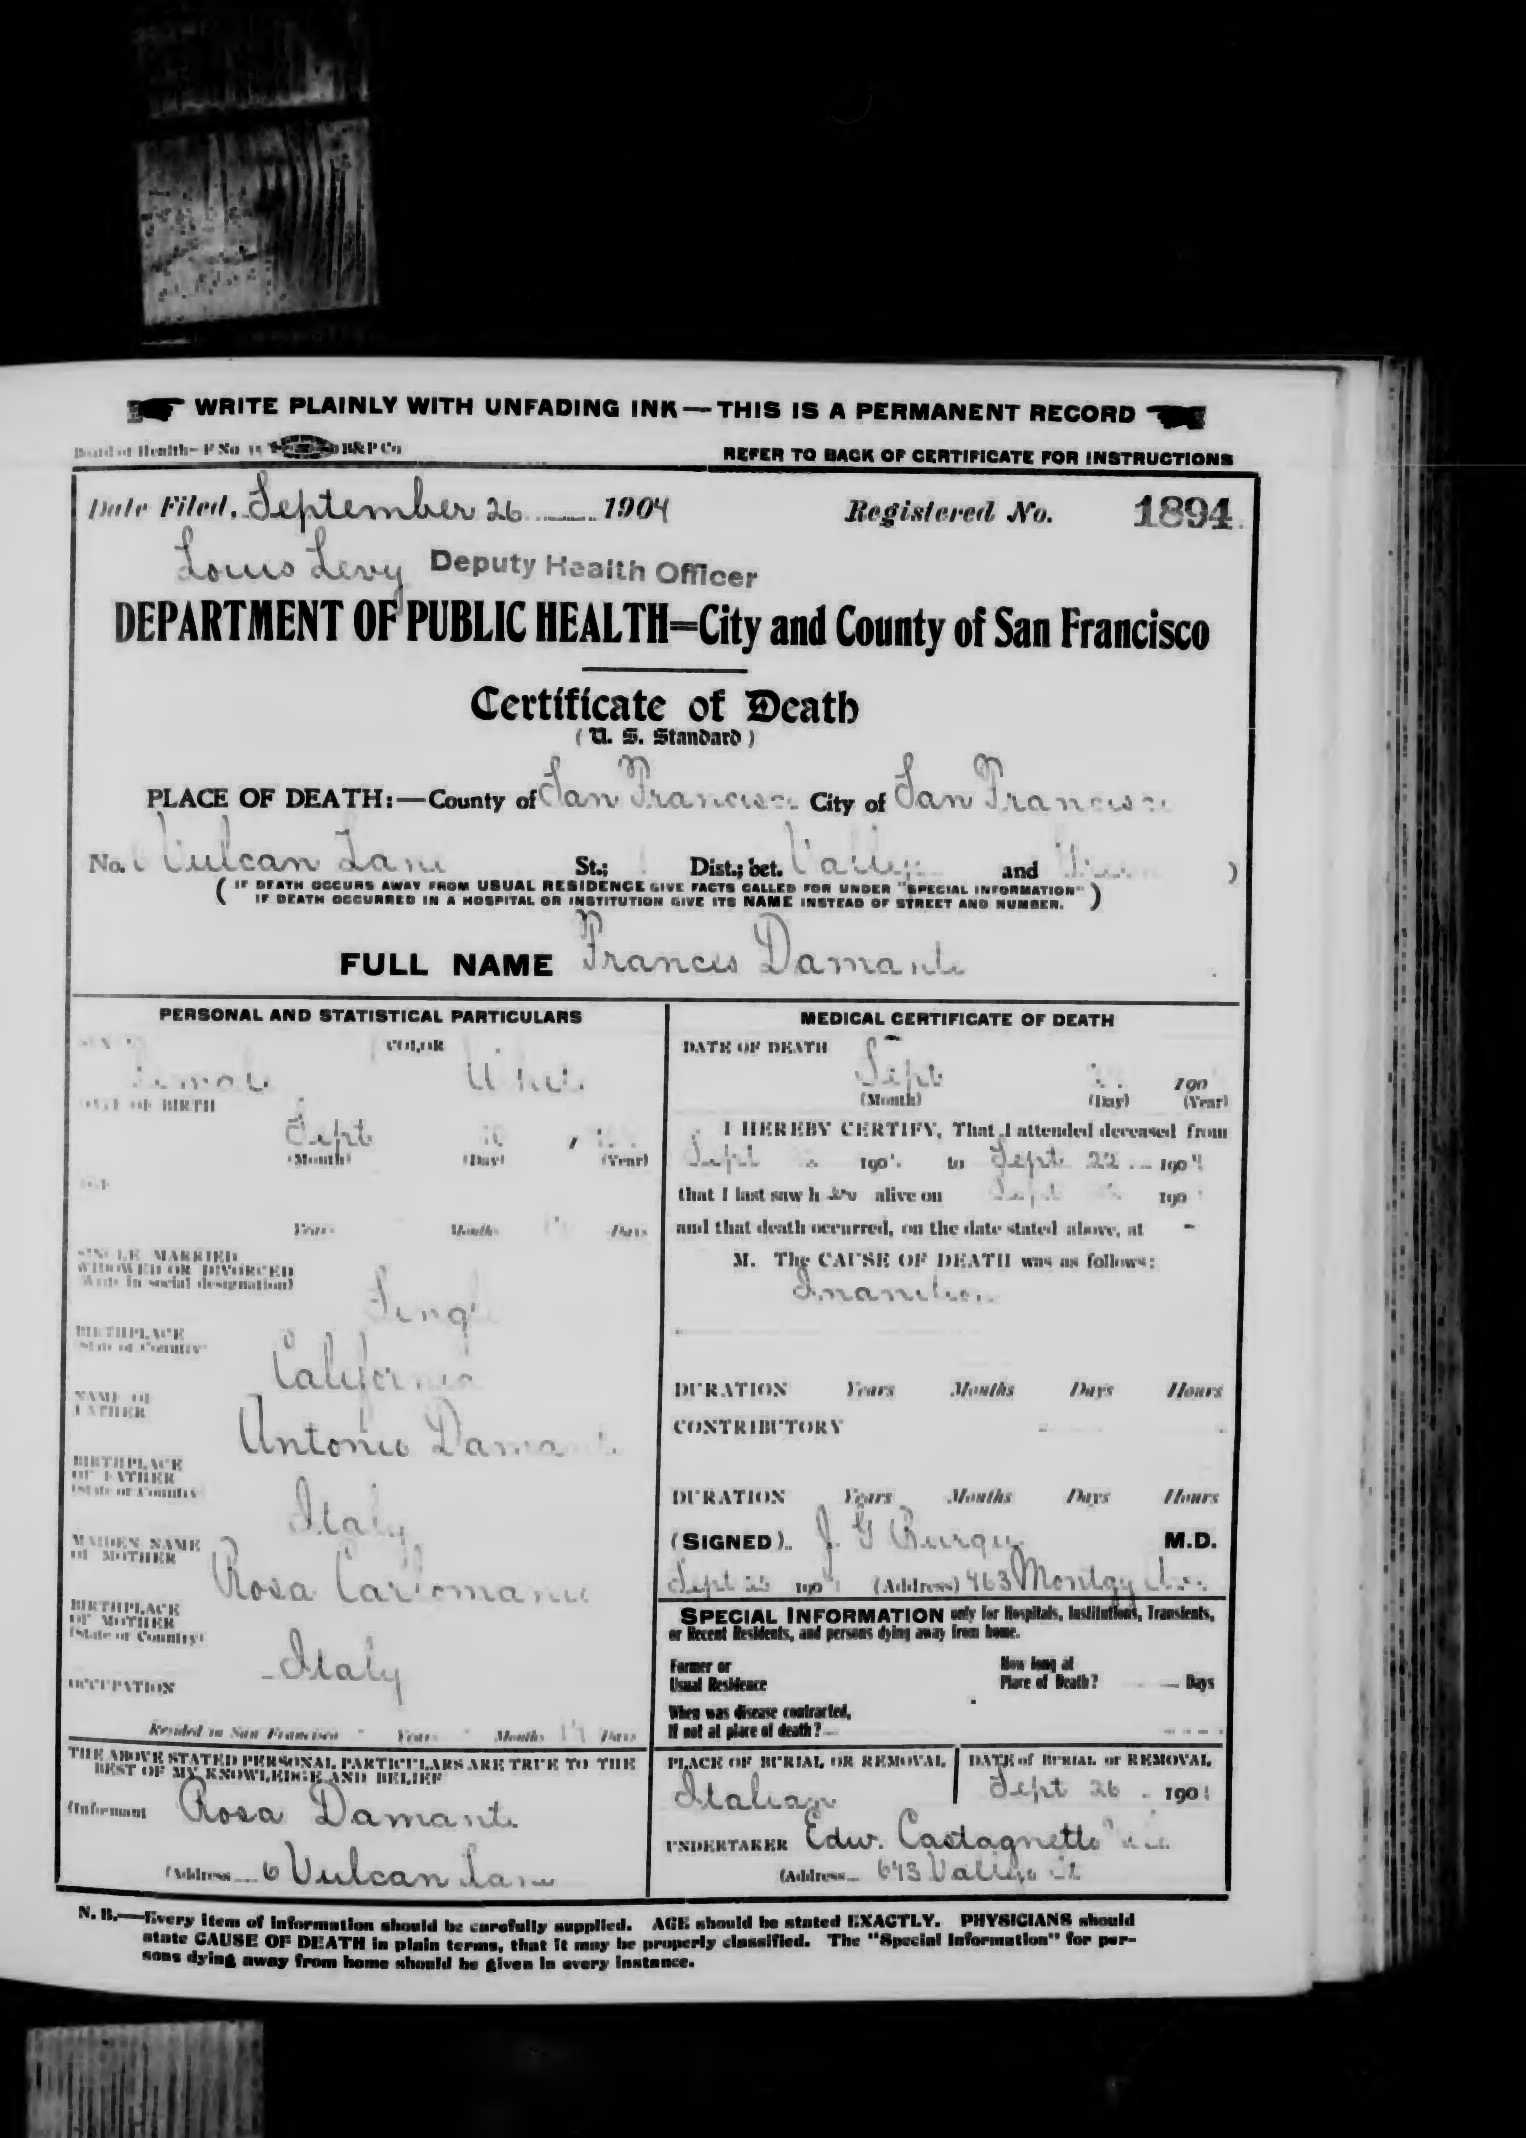 WRITE PLAINLY WITH UNFADING INK—THIS IS A PERMANENT RECORD
Board of Health—F No B&P Co
REFER TO BACK OF CERTIFICATE FOR INSTRUCTIONS
Date Filed, September 26 1904 Registered No. 1894
Louis Levy Deputy Health Officer
DEPARTMENT OF PUBLIC HEALTH=City and County of San Francisco
Certificate of Death
(U. S. Standard)
PLACE OF DEATH:—County of San Francisco City of San Francisco
No. 6 Vulcan Lane St.; Dist.; bet. Vallejo and )
( IF DEATH OCCURS AWAY FROM USUAL RESIDENCE GIVE FACTS CALLED FOR UNDER "SPECIAL INFORMATION"
IF DEATH OCCURRED IN A HOSPITAL OR INSTITUTION GIVE ITS NAME INSTEAD OF STREET AND NUMBER. )
FULL NAME Frances Damante
PERSONAL AND STATISTICAL PARTICULARS
SEX COLOR
Female White
DATE OF BIRTH
Sept 10
(Month) (Day) (Year)
AGE
Years Months Days
SINGLE MARRIED
WIDOWED OR DIVORCED
(Write in social designation)
Single
BIRTHPLACE
(State or Country)
California
NAME OF
FATHER
Antonio Damante
BIRTHPLACE
OF FATHER
(State or Country)
Italy
MAIDEN NAME
OF MOTHER
Rosa
BIRTHPLACE
OF MOTHER
(State or Country)
Italy
OCCUPATION
Resided in San Francisco Years Months Days
THE ABOVE STATED PERSONAL PARTICULARS ARE TRUE TO THE
BEST OF MY KNOWLEDGE AND BELIEF
(Informant Rosa Damante
(Address 6 Vulcan Lane
MEDICAL CERTIFICATE OF DEATH
DATE OF DEATH
Sept 190
(Month) (Day) (Year)
I HEREBY CERTIFY, That I attended deceased from
Sept 190 to Sept 22 1904
that I last saw her alive on Sept 190
and that death occurred, on the date stated above, at -
M. The CAUSE OF DEATH was as follows:
Inanition
DURATION Years Months Days Hours
CONTRIBUTORY
DURATION Years Months Days Hours
(SIGNED) J. G. M.D.
Sept 190 (Address) 463 Montgy Ave
SPECIAL INFORMATION only for Hospitals, Institutions, Transients,
or Recent Residents, and persons dying away from home.
Former or
Usual Residence
How long at
Place of Death? Days
When was disease contracted,
If not at place of death?
PLACE OF BURIAL OR REMOVAL DATE of BURIAL or REMOVAL
Italian Sept 26 190
UNDERTAKER Edw. Castagnetto
(Address 643 Vallejo St
N. B.—Every item of information should be carefully supplied. AGE should be stated EXACTLY. PHYSICIANS should
state CAUSE OF DEATH in plain terms, that it may be properly classified. The "Special Information" for per-
sons dying away from home should be given in every instance.